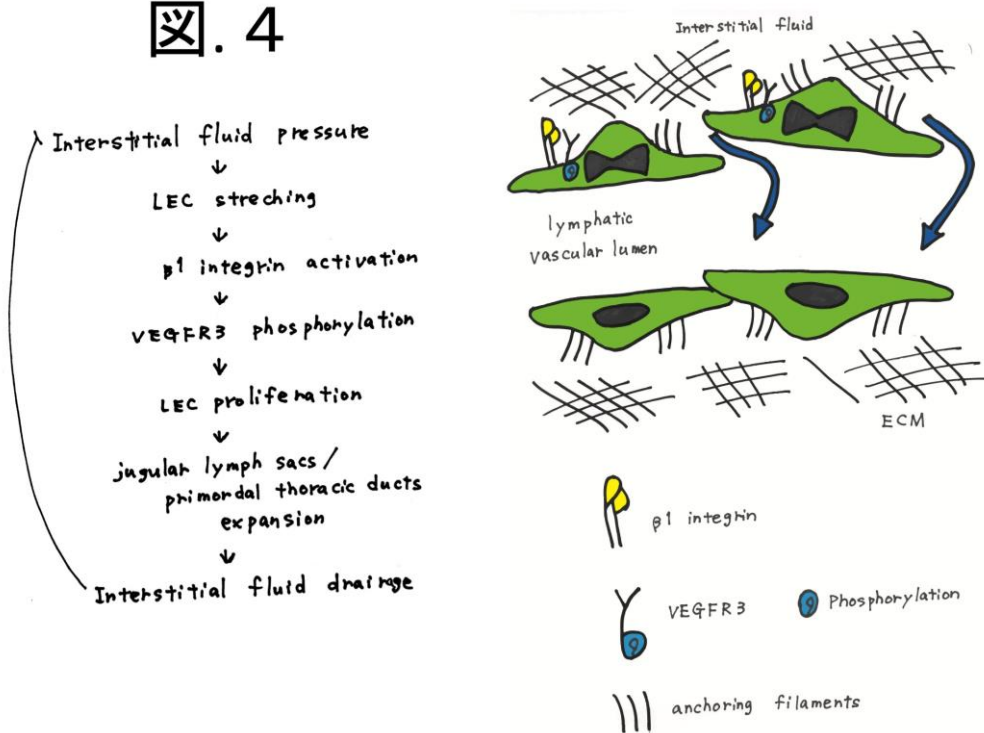 図. 4
Interstitial fluid pressure
LEC streching
β1 integrin activation
VEGFR3 phosphorylation
LEC proliferation
jugular lymph sacs /
primordal thoracic ducts
expansion
Interstitial fluid drairage
Interstitial fluid
lymphatic
vascular lumen
ECM
β1 integrin
VEGFR3
Phosphorylation
anchoring filaments